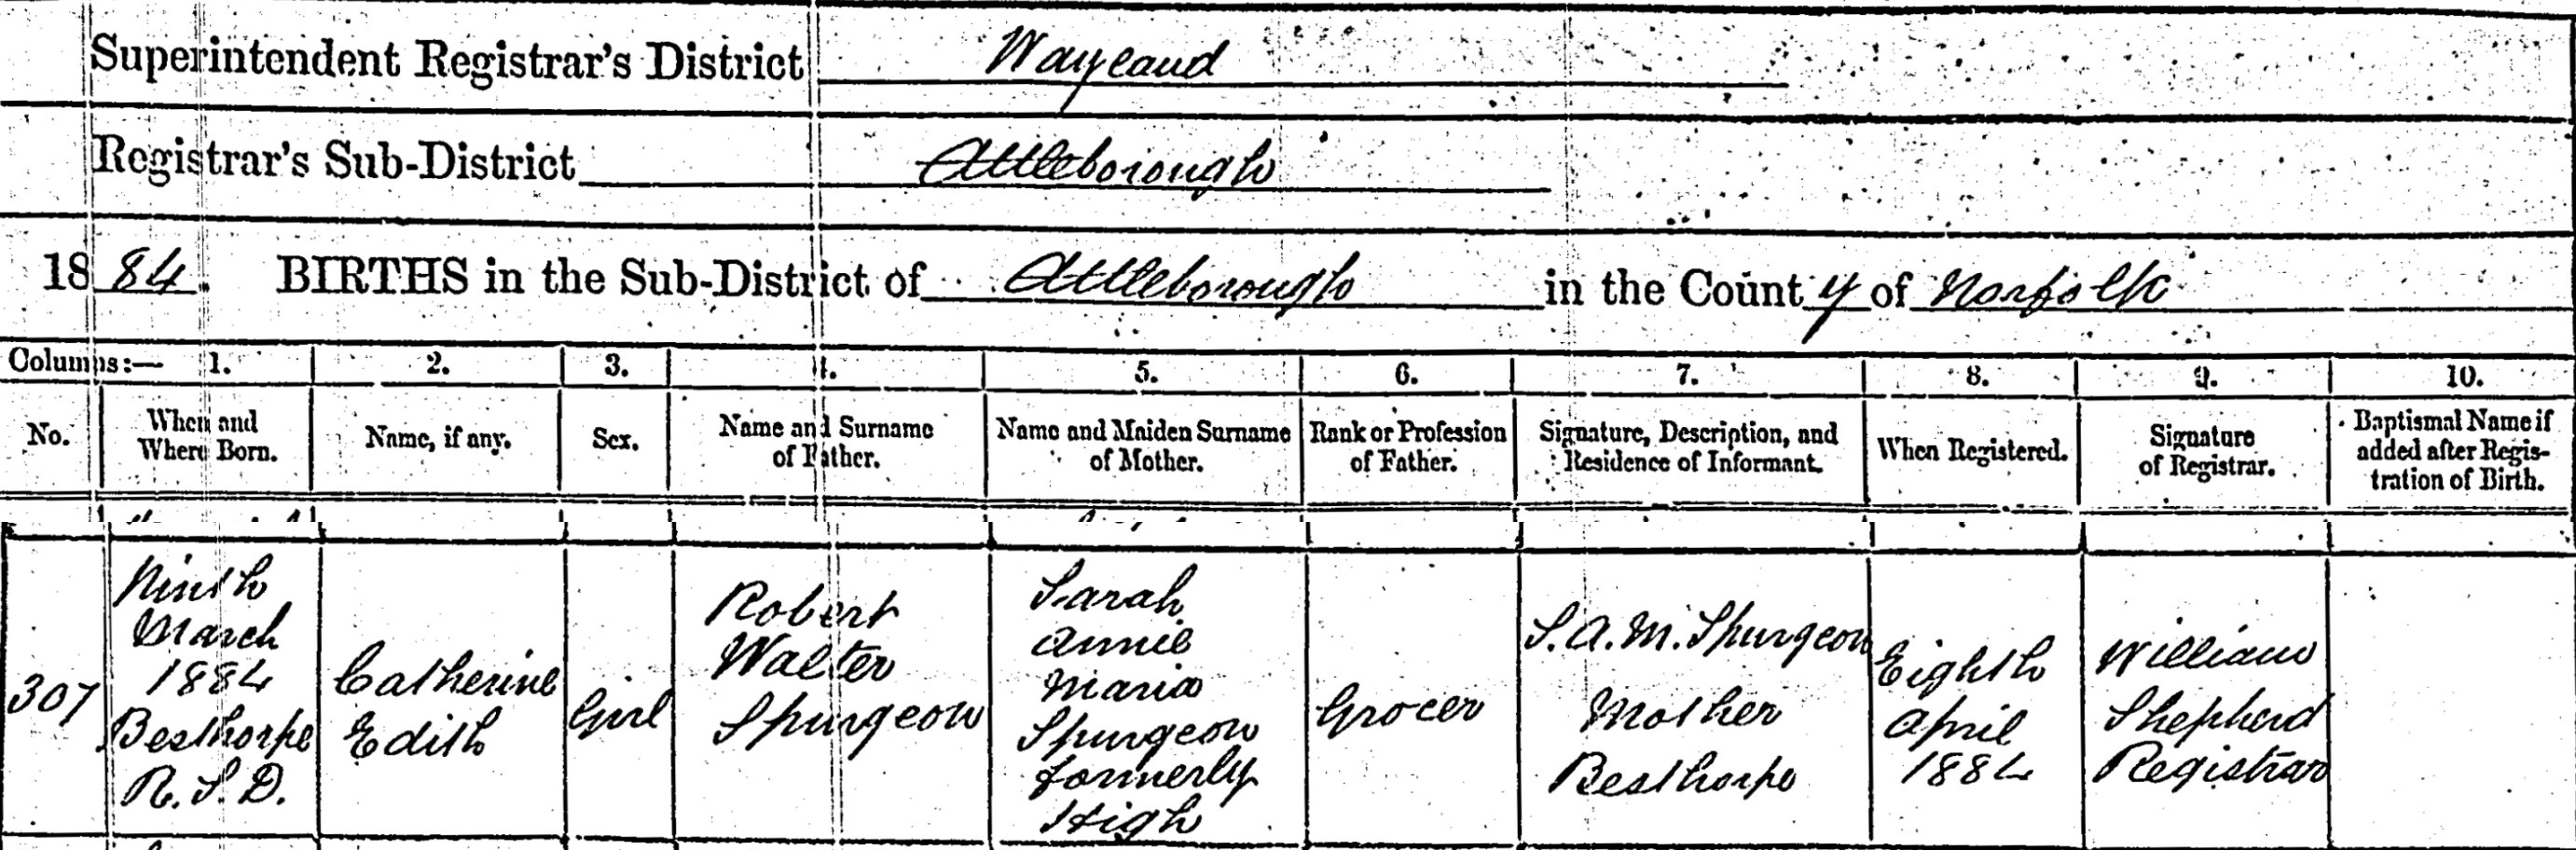 Superintendent Registrar's District Wayland
Registrar's Sub-District Attleborough
1884. BIRTHS in the Sub-District of Attleborough in the County of Norfolk
Columns:— 1. 2. 3. 4. 5. 6. 7. 8. 9. 10.
No.
When and
Where Born.
Name, if any.
Sex.
Name and Surname
of Father.
Name and Maiden Surname
of Mother.
Rank or Profession
of Father.
Signature, Description, and
Residence of Informant.
When Registered.
Signature
of Registrar.
Baptismal Name if
added after Regis-
tration of Birth.
307
Ninth
March
1884
Besthorpe
R.S.D.
Catherine
Edith
Girl
Robert
Walter
Spurgeon
Sarah
Annie
Maria
Spurgeon
formerly
High
Grocer
S.A.M. Spurgeon
Mother
Besthorpe
Eighth
April
1884
William
Shepherd
Registrar